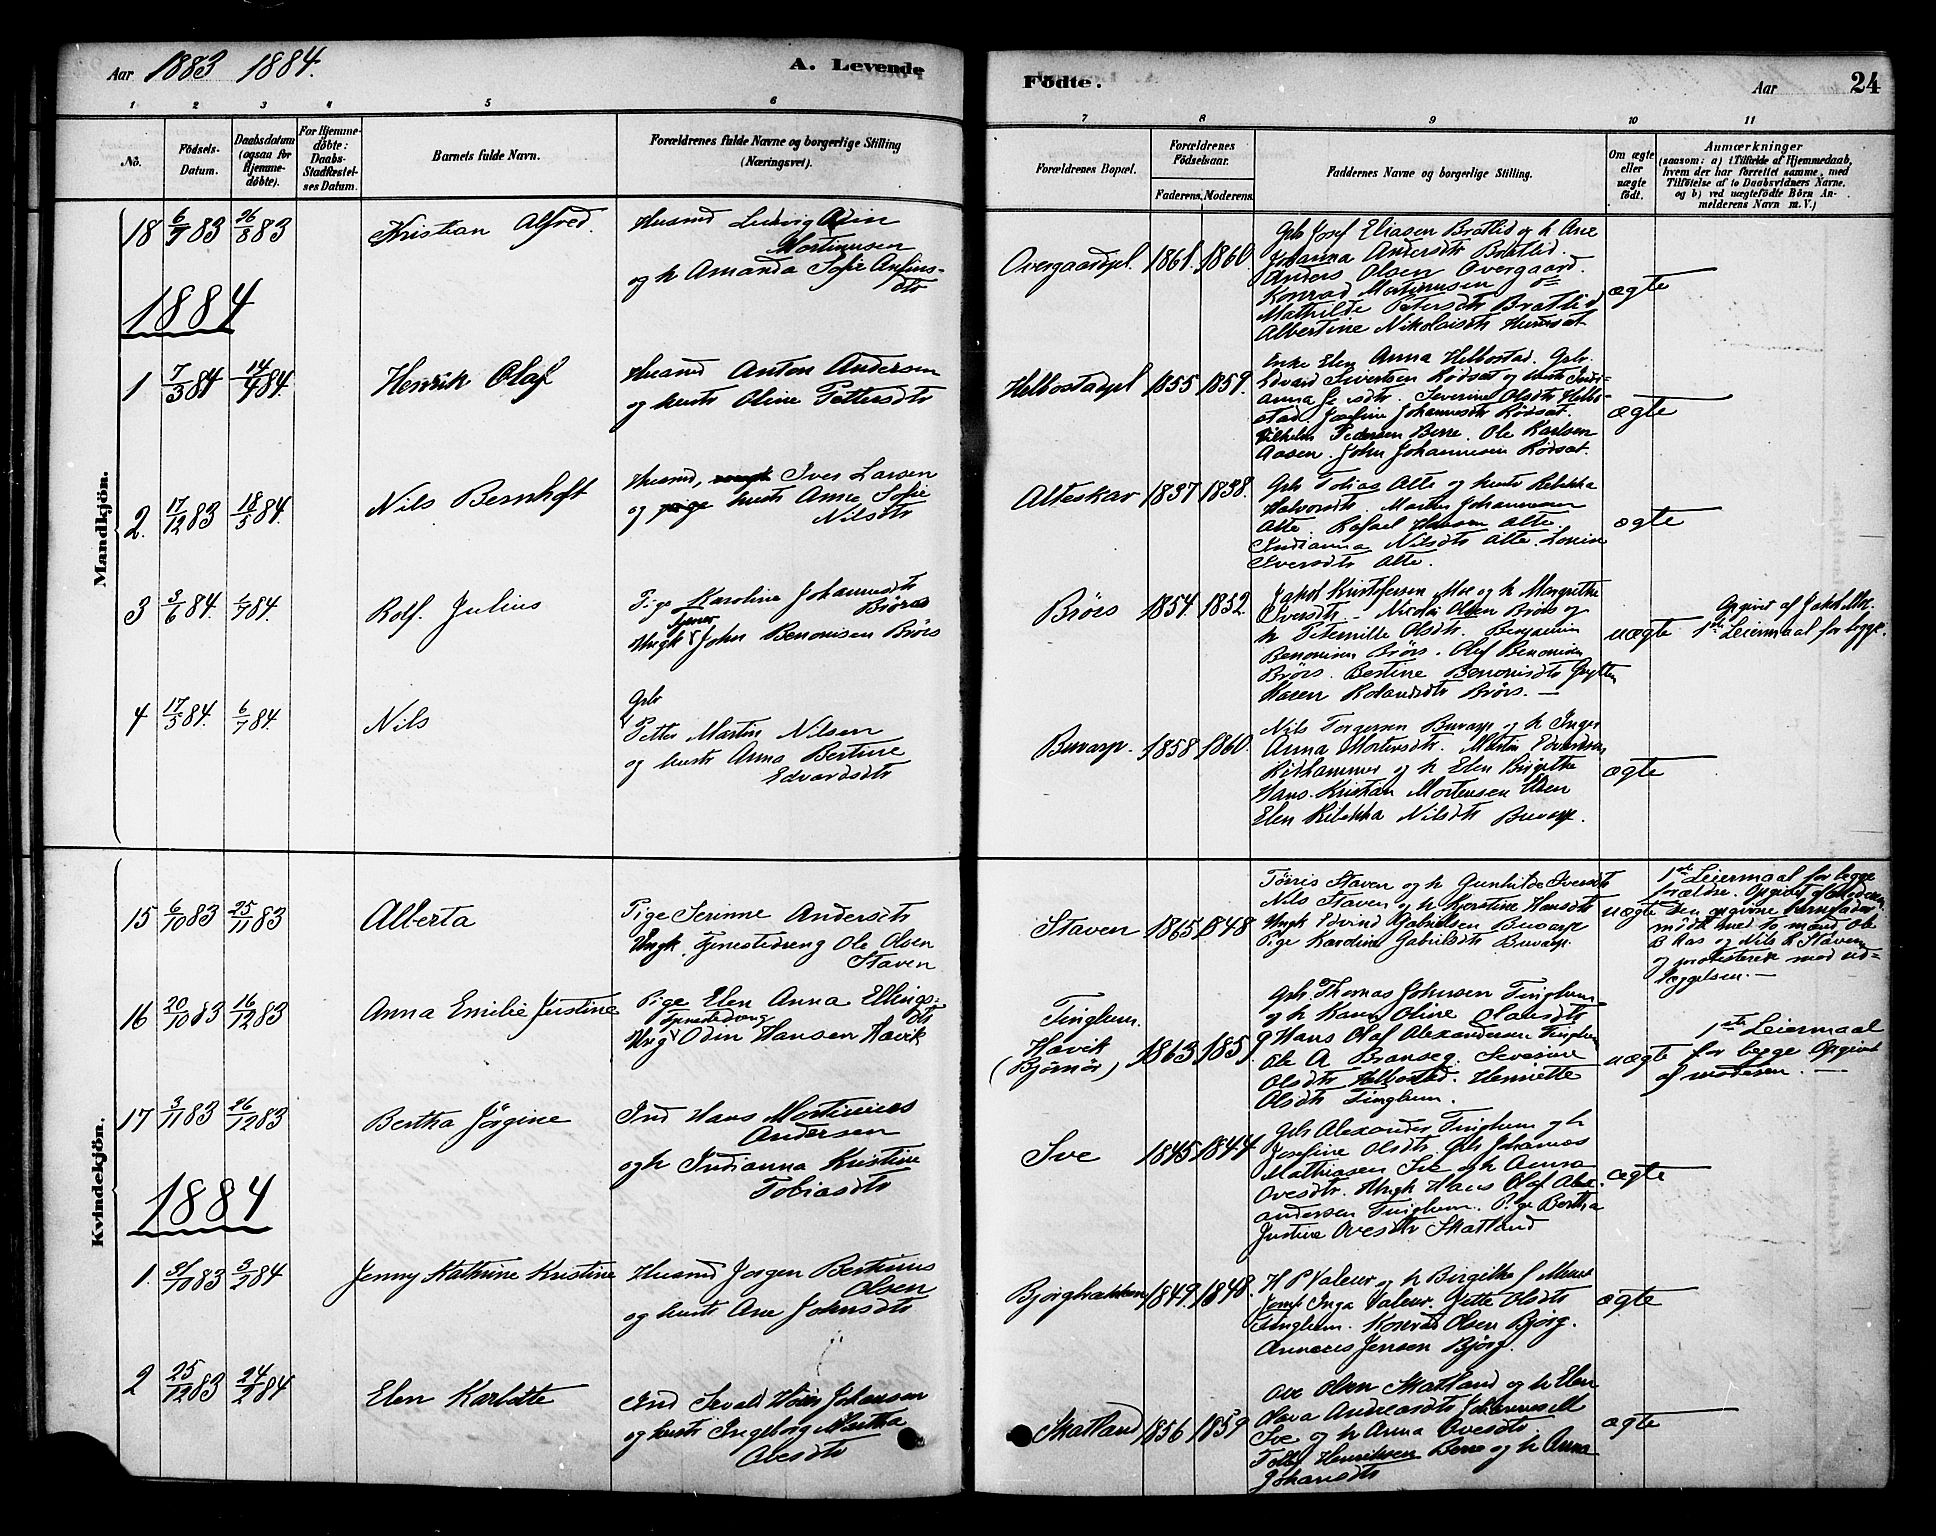 Aar 1883 1884.
A. Levende
Fødte.
Aar
24
1 2 3 4 5 6 7 8 9 10 11
No.
Fødsels-Datum.
Daabsdatum (ogsaa for Hjemmedøbte).
For Hjemmedøbte: Daabs-Stadfæstelses Datum.
Barnets fulde Navn.
Forældrenes fulde Navne og borgerlige Stilling (Næringsvei).
Forældrenes Bopæl.
Forældrenes Fødselsaar.
Faderens. Moderens.
Faddernes Navne og borgerlige Stilling.
Om ægte eller uægte født.
Anmærkninger
(saasom: a) i Tilfælde af Hjemmedaab, hvem der har forrettet samme, med Tilføielse af to Daabsvidners Navne, og b) ved uægtefødte Børn Anmelderens Navn m. V.)
Mandkjön.
18 6/7 83 26/8 83 Kristian Alfred.
Husmd Ludvig Odin
Mortinusen
og h Amanda Sofie Anfins-
dtr
Overgaardspl. 1861. 1860.
Gbr Josef Eliasen Bratlid og h Ane
Johanna Andersdtr Bratlid.
Anders Olsen Overgaard.
Konrad Mortinusen
Mathilde Petersdtr Bratlid
Albertine Nikolaisdtr
ægte
1884
1 7/3 84 14/4 84. Henrik Olaf
Husmd Anton Andersen
og hustr Oline Pettersdtr
Helbostadpl 1855 1859.
Enke Elen Anna Helbostad. Gbr.
Edvard Sivertsen Rødsøt og hustr Indi-
anna Severine Olsdtr Helbo-
stad. Josefine Johannesdtr Rødsøt.
Vilhelm Pedersen Berre. Ole Karlsen
Aasen. John Johannesen Rødsøt.
ægte
2. 17/12 83 18/5 84. Nils Bernhoft
Husmd, Iver Larsen
og hustr Anne Sofie
Nilsdtr
Alteskar 1837 1838.
Gbr Tobias Alte og hustr Rebekka
Halvorsdtr. Martin Johannesen
Alte. Rafael Hansen Alte.
Indianna Nilsdtr Alte. Lovise
Iversdtr Alte.
ægte
3 3/6 84. 6/7 84. Rolf. Julius
Pige Karoline Johannesdtr
Brörs
Tjener
Ungk John Benonisen Brörs
Brörs 1854 1852
Jakob Kristofersen Moe og h Margrethe
Iversdtr. Nicolai Olsen Brörs og
h Peternille Olsdtr. Benjamin
Benonisen Brörs. Olaf Benonisen
Brörs. Bertine Benonisdtr
Karen Rolandsdtr Brörs.
uægte
Opgivet af Jakob Moe.
1ste Leiermaal for begge.
4 17/5 84. 6/7 84. Nils
Gbr
Petter Martin Nilsen
og hustr Anna Bertine
Edvardsdtr
Buvarp. 1858 1860.
Nils Torgersen Buvarp og h Inger
Anna Mortensdtr. Martin Edvardsen
Rødhammer og h Elen Birgitte
Hans Kristian Mortensen
Elen Rebekka Nilsdtr Buvarp.
ægte
Kvindekjön.
15 6/10 83 25/11 83 Alberta
Pige Serinne Andersdtr
Ungk. Tjenestedreng Ole Olsen
Staven
Staven 1865 1848
Tørris Staven og h Gunhilde Iversdtr
Nils Staven og h Kjerstine Hansdtr
Ungk Edvind Gabrielsen Buvarp
Pige Karoline Gabrielsdtr Buvarp.
uægte
1ste Leiermaal for begge
forældre. Opgivet af moderen,
Den opgivne barnefader
mødte med to mænd Ole
B Aas og Nils L Staven
og protesterede mod ud-
læggelsen.
16 20/10 83 16/12 83 Anna Emilie Justine
Pige Elen Anna Ellings-
dtr
Tjenestedreng
Ung Odin Hansen Havik
Tinghum.
Havik
(Bjørnør) 1863 1859
Gbr. Thomas Johnsen Tinghum
og h Karen Oline Olausdtr
Hans Olaf Alexandersen Tinghum
Ole A Branseg. Severine
Olsdtr Helbostad. Henriette
Olsdtr Tinghum.
uægte
1ste Leiermaal
for begge Opgivet
af moderen.
17 3/11 83 26/12 83 Bertha Jörgine
Ind Hans Mortinius
Andersen
og h Indianna Kristine
Tobiasdtr
Sve 1845 1844
Gbr Alexander Tinghum og h
Josefine Olsdtr. Gbr Johannes
Mathiasen Sve og h Anna
Ovesdtr. Ungk Hans Olaf Alex-
andersen Tinghum. Pige Bertha
Justine Ovesdtr Skatland
ægte
1884
1. 31/10 83 3/2 84 Jenny Kathrine Kristine
Husmd Jørgen Bertinus
Olsen
og hustr Ane Johnsdtr
Bjørgbakken 1849. 1848.
H P Valeur og h Birgitte
Jomf Inga Valeur. Jette Olsdtr
Tinghum. Konrad Olsen Bjørg.
Jensen Bjørg.
ægte
2 25/12 83 24/2 84 Elen Karlotte
Ind Sevald Johansen
og hustr Ingeborg Martha
Ovesdtr
Skatland 1856 1859
Ove Olsen Skatland og h Elen
Olava Andreasdtr
Sve og h Anna Ovesdtr
Henriksen Berre og h Anna
Johansdtr
ægte